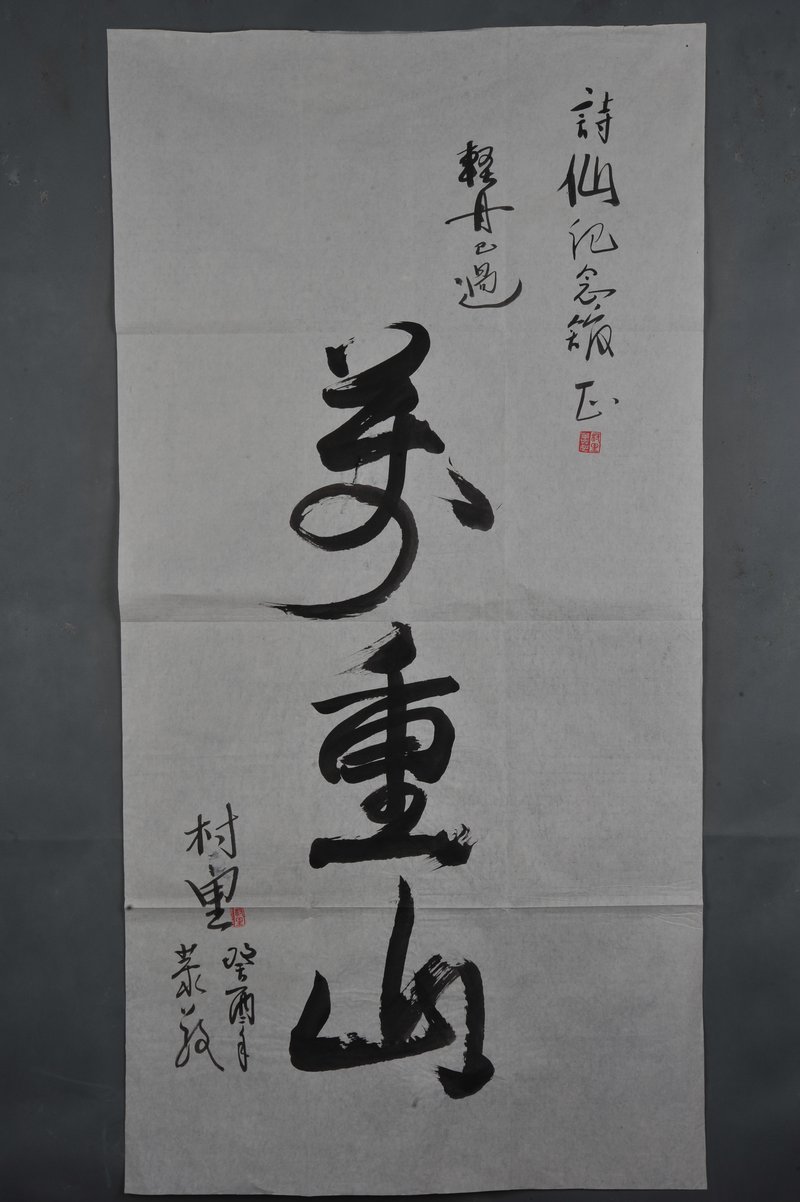 詩仙記念館正
軽舟已過
萬重山
村里
癸酉年
恭